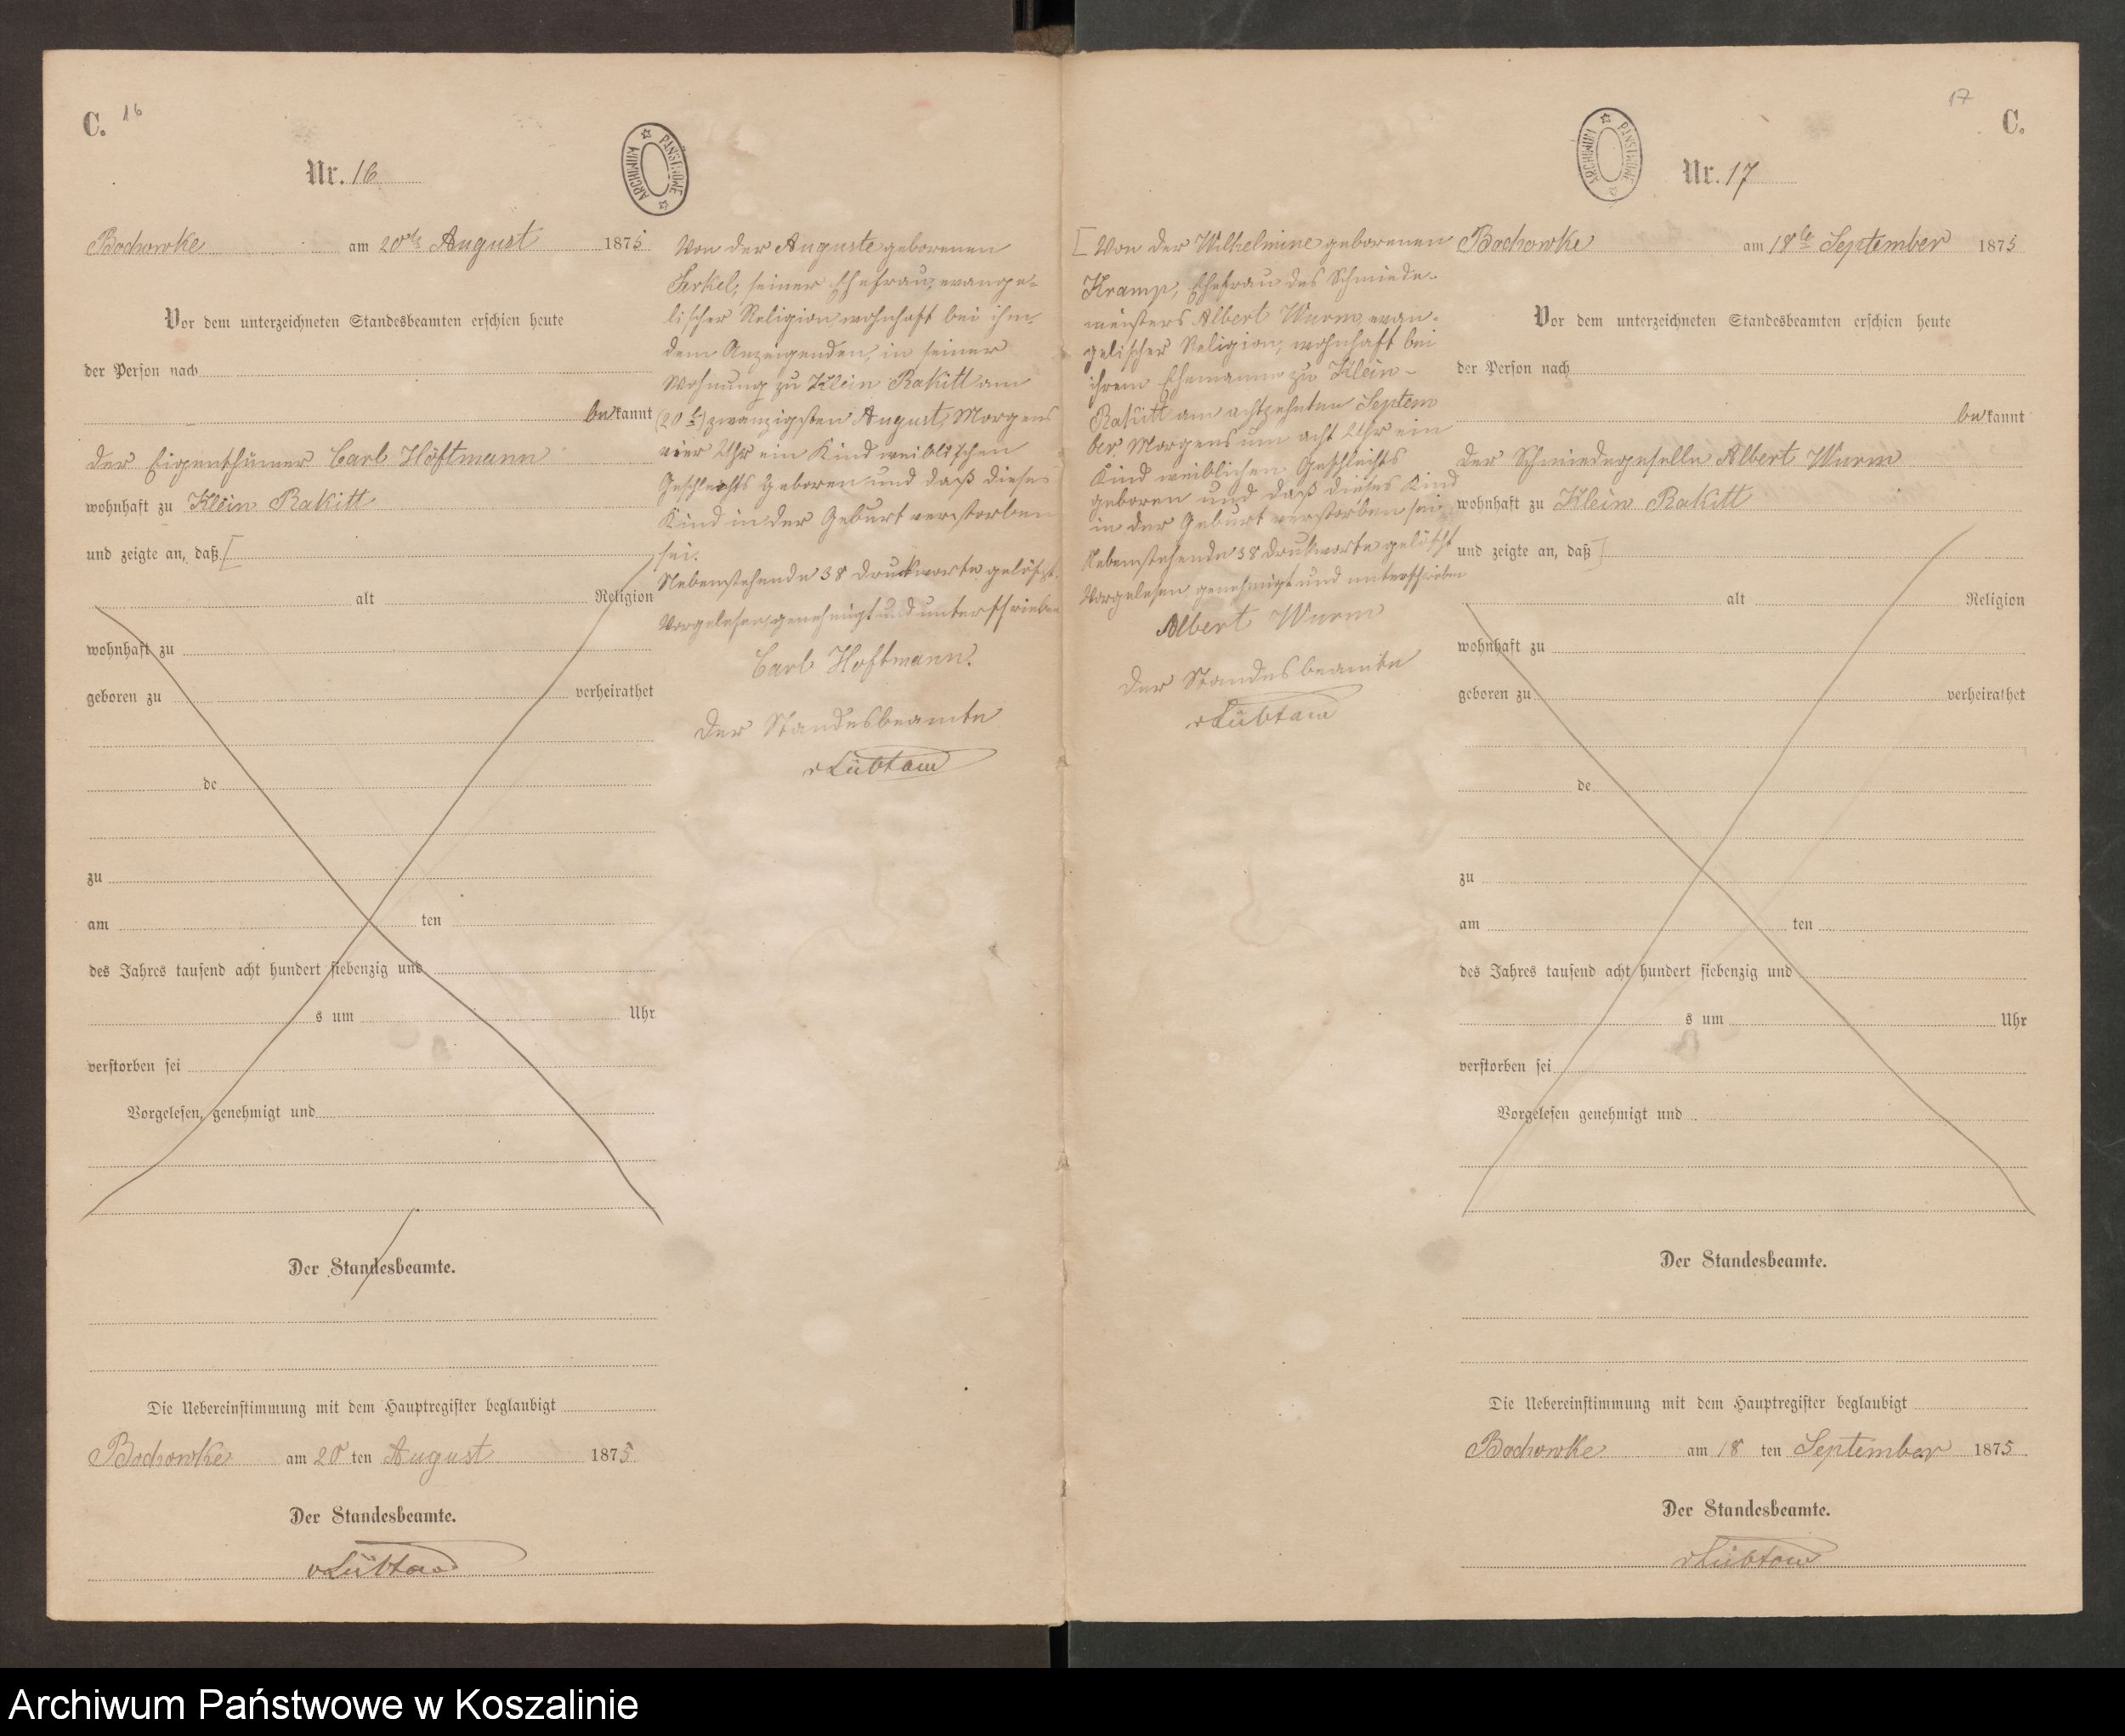 C. 16
Nr. 16
ARCHIWUM PAŃSTWOWE
Bochowke am 20ten August 1875
Vor dem unterzeichneten Standesbeamten erschien heute
der Person nach
bekannt
der Eigenthümer Carl Hoftmann
wohnhaft zu Klein Rakitt
und zeigte an, daß [
alt Religion
wohnhaft zu
geboren zu verheirathet
de
zu
am ten
des Jahres tausend acht hundert siebenzig und
s um Uhr
verstorben sei
Vorgelesen, genehmigt und
Der Standesbeamte.
Die Uebereinstimmung mit dem Hauptregister beglaubigt
Bochowke am 20 ten August 1875
Der Standesbeamte.
vLübtow
Von der Auguste geborenen
seiner Ehefrau, evange-
lischer Religion, wohnhaft bei ihm,
dem Anzeigenden, in seiner
Wohnung zu Klein Rakitt am
(20t) zwanzigsten August, Morgens
vier Uhr ein Kind weiblischen
Geschlechts geboren und daß dieses
Kind in der Geburt verstorben
sei.
Nebenstehende 38 Druckworte gelöscht.
Vorgelesen, genehmigt und unterschrieben
Carl Hoftmann.
Der Standesbeamte
vLübtow
17
C.
ARCHIWUM PAŃSTWOWE
Nr. 17
[ Von der Wilhelmine geborenen
Kramp, Ehefrau des Schmiede-
meisters Albert Wurm, evan-
gelischer Religion, wohnhaft bei
ihrem Ehemanne zu Klein-
Rakitt am achtzehnten Septem
ber, Morgens um acht Uhr ein
Kind weiblichen Geschlechts
geboren und daß dieses Kind
in der Geburt verstorben sei.
Nebenstehende 38 Druckworte gelöscht
Vorgelesen genehmigt und unterschrieben
Albert Wurm
Der Standesbeamte
vLübtow
Bochowke am 18te September 1875
Vor dem unterzeichneten Standesbeamten erschien heute
der Person nach
bekannt
der Schmiedegeselle Albert Wurm
wohnhaft zu Klein Rakitt
und zeigte an, daß ]
alt Religion
wohnhaft zu
geboren zu verheirathet
de
zu
am ten
des Jahres tausend acht hundert siebenzig und
s um Uhr
verstorben sei
Vorgelesen genehmigt und
Der Standesbeamte.
Die Uebereinstimmung mit dem Hauptregister beglaubigt
Bochowke am 18 ten September 1875
Der Standesbeamte.
vLübtow
Archiwum Państwowe w Koszalinie